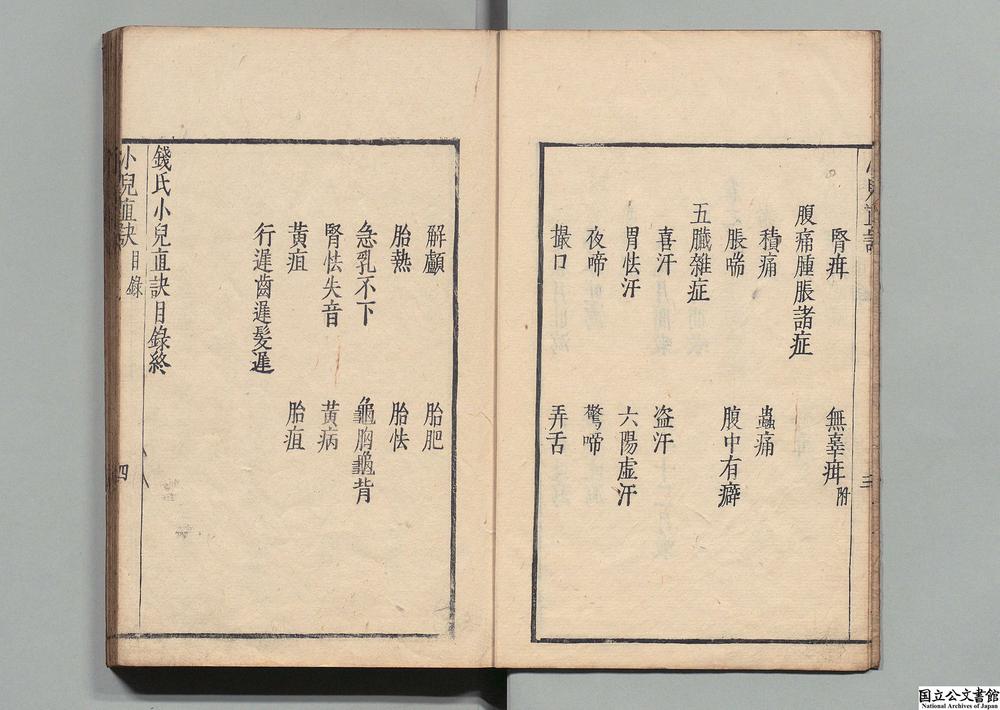 腎疳　無辜疳附
腹痛腫脹諸症
積痛　蟲痛
脹喘　腹中有癖
五臟雜症
喜汗　盗汗
胃怯汗　六陽虚汗
夜啼　驚啼
撮口　弄舌
三
解顱　胎肥
胎熱　胎怯
急乳不下　龜胸龜背
腎怯失音　黄病
黄疸　胎疸
行遲齒遲髮遲
錢氏小兒直訣目錄終
小兒直訣　目錄　四
国立公文書館
National Archives of Japan